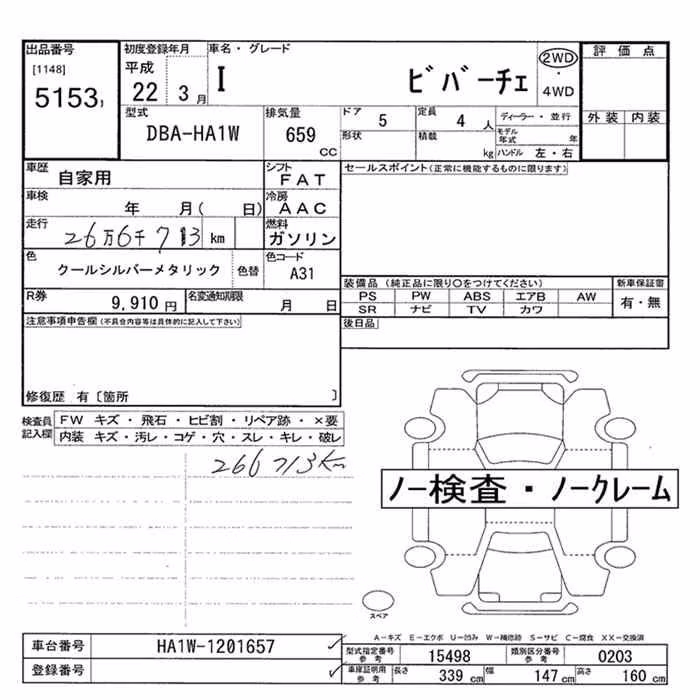 出品番号 初度登録年月 車名・グレード 評価点
[1148] 平成 I ビバーチェ 2WD
5153 22 3月 4WD
型式 排気量 ドア 5 定員 4人 ディーラー・並行 外装 内装
DBA-HA1W 659 形状 積載 モデル年式 年
CC kg ハンドル 左・右
車歴 自家用 シフト FAT セールスポイント(正常に機能するものに限ります)
車検 年 月( 日) 冷房 AAC
走行 26万6千713km 燃料 ガソリン
色 クールシルバーメタリック 色替 色コード A31
装備品(純正品に限り○をつけてください) 新車保証書
R券 9,910円 名変通知期限 月 日 PS PW ABS エアB AW 有・無
SR ナビ TV カワ
注意事項申告欄(不具合内容等は具体的に記入して下さい) 後日品
修復歴 有〔箇所 〕
検査員記入欄 FW キズ・飛石・ヒビ割・リペア跡・×要
内装 キズ・汚レ・コゲ・穴・スレ・キレ・破レ
266713km
ノー検査・ノークレーム
スペア
A-キズ E-エクボ U-凹み W-補修跡 S-サビ C-腐食 XX-交換済
車台番号 HA1W-1201657 型式指定番号 参考 15498 類別区分番号 参考 0203
登録番号 車庫証明用 参考 長さ 339cm 幅 147cm 高さ 160cm